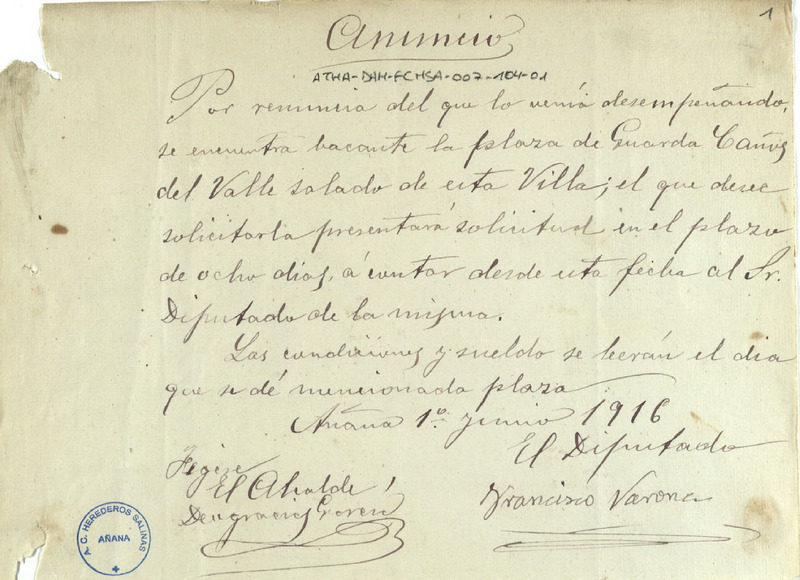 1
Anuncio
ATHA-DAH-FCHSA-007-104-01
Por renuncia del que lo venía desempeñando,
se encuentra bacante la plaza de Guarda Caños
del Valle salado de esta Villa; el que desee
solicitarla presentará solicitud en el plazo
de ocho dias, á contar desde esta fecha al Sr.
Diputado de la misma.
Las condiciones y sueldo se leerán el dia
que se dé mencionada plaza
Añana 1º junio 1916
El Diputado
Fijese
El Alcalde
Francisco Varona
Deogracias
A. C. HEREDEROS SALINAS
AÑANA